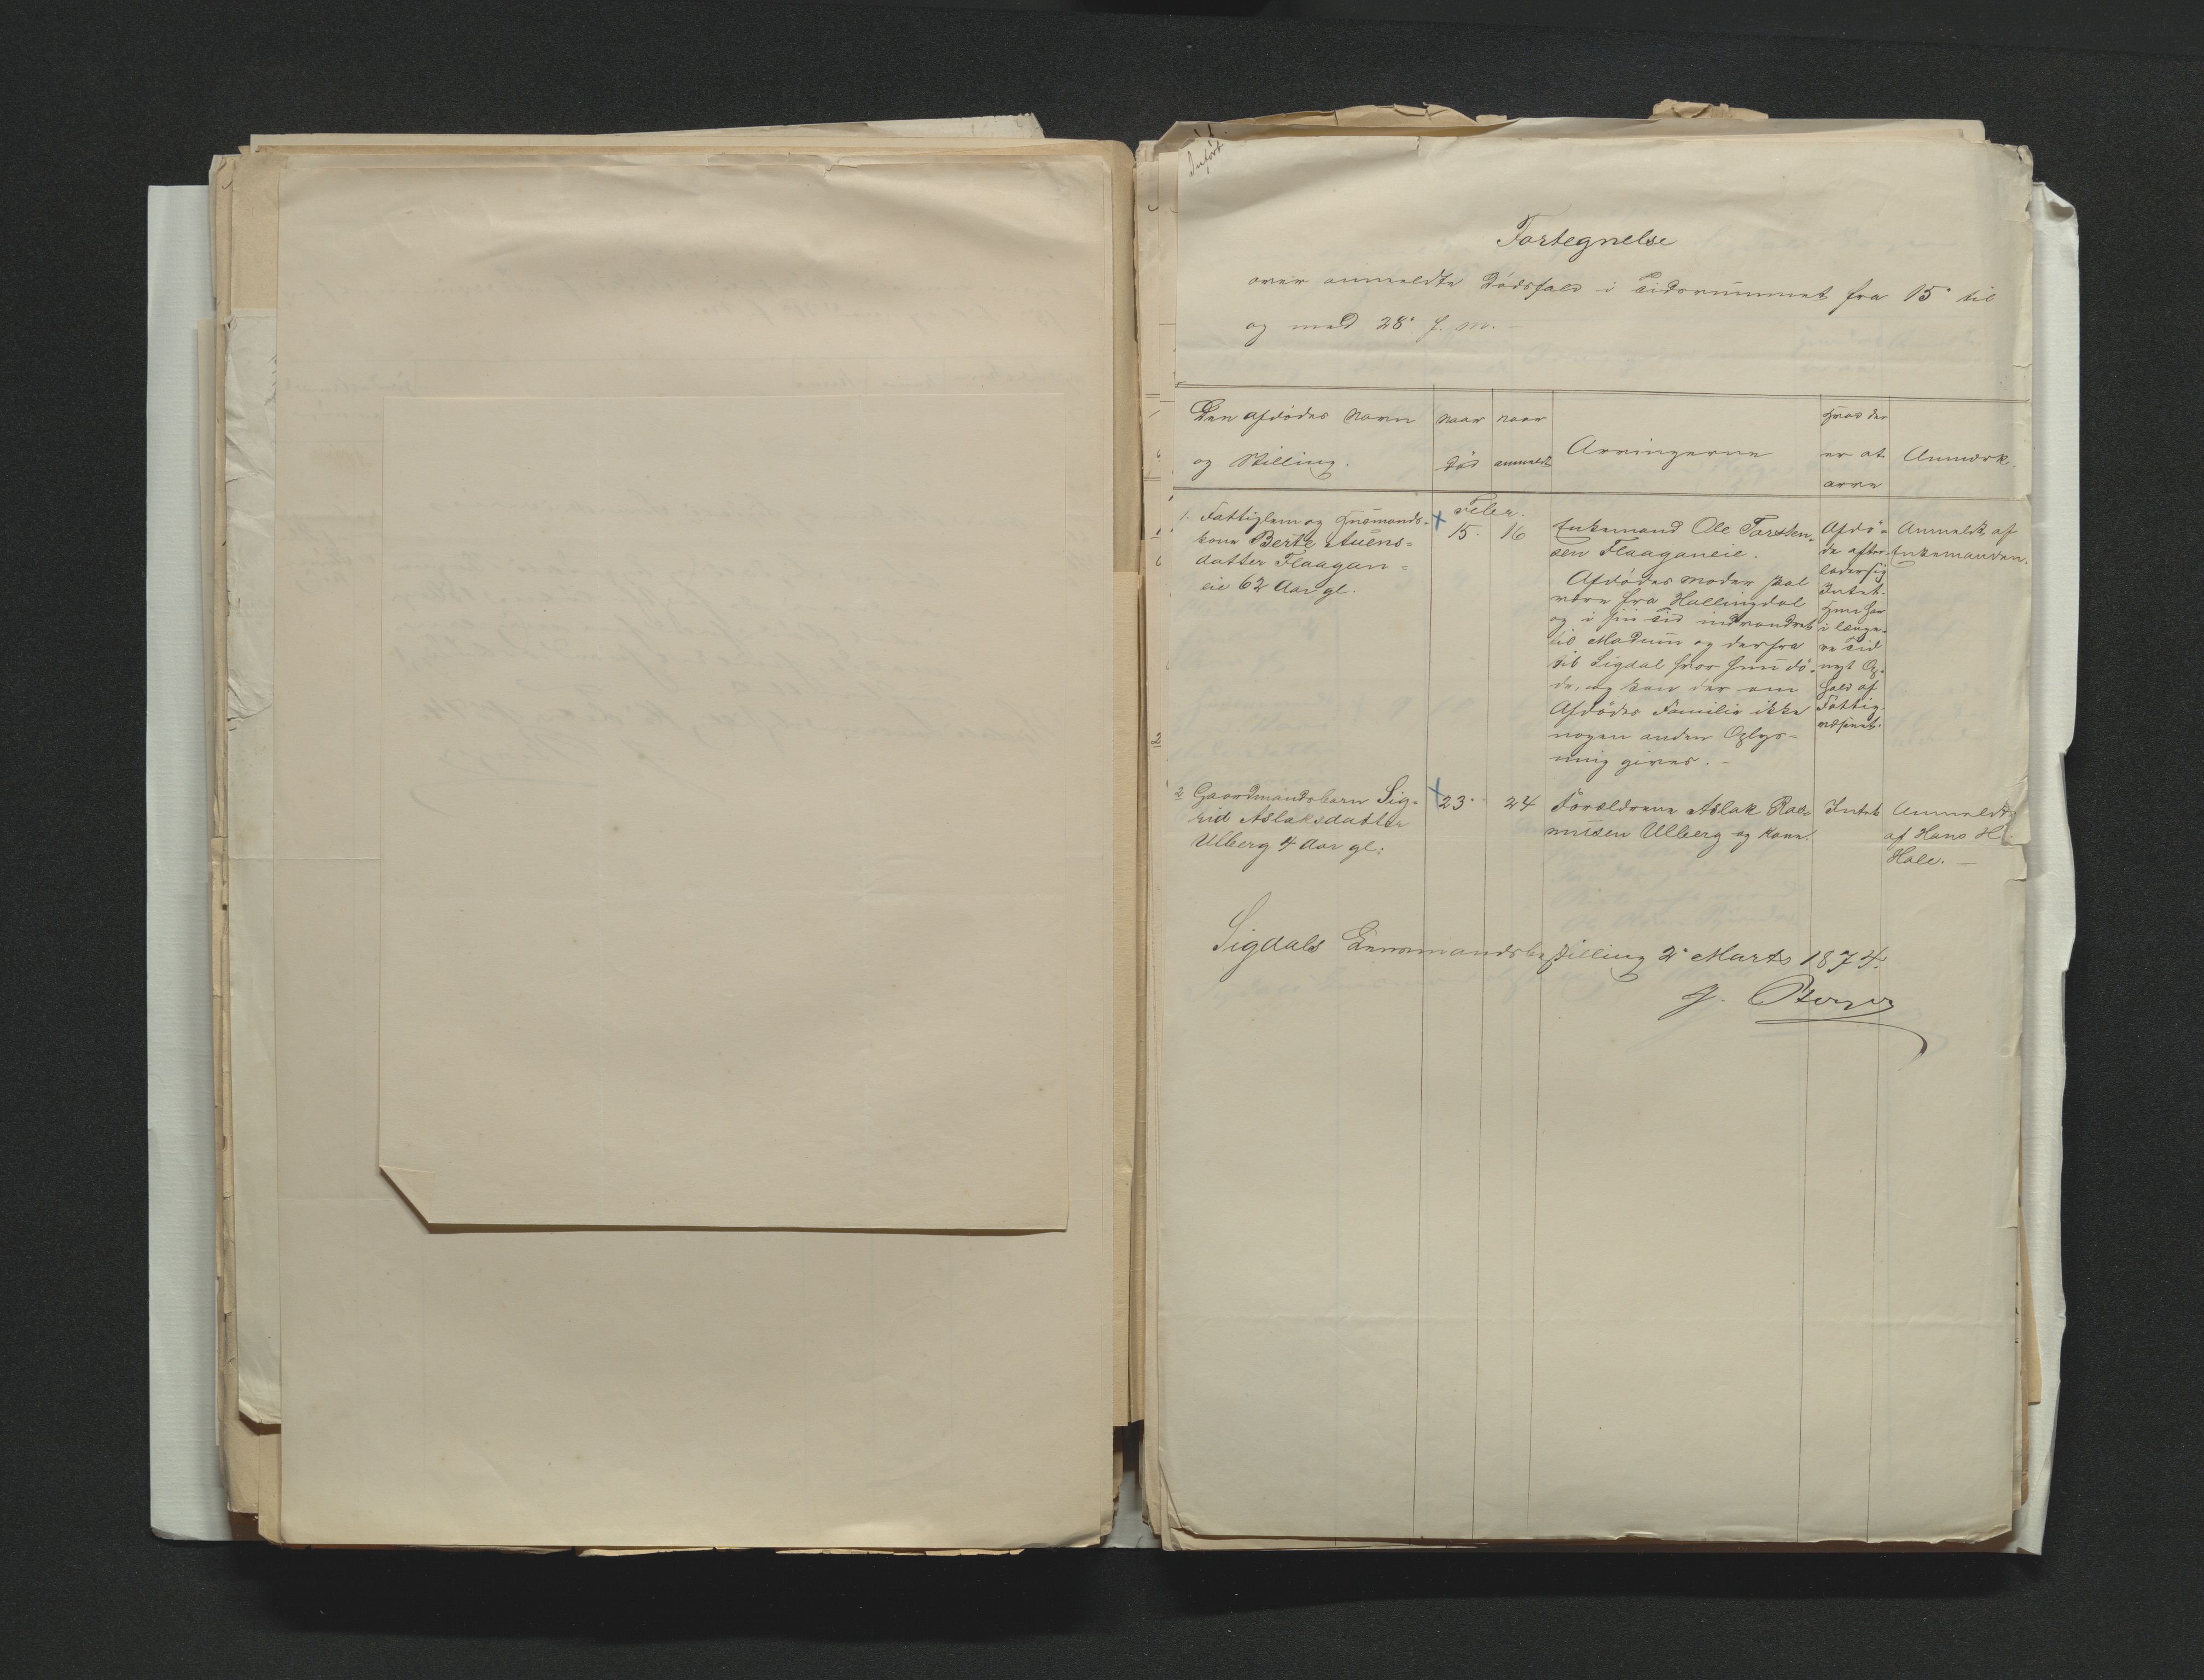 Indført
Fortegnelse
over anmeldte Dødsfald i Tidsrummet fra 15de til
og med 28de f. m. -
Den afdødes Navn
og Stilling.
naar
død
naar
anmeldt
Arvingerne
Hvad der
er at
arve
Anmærk.
1. Fattiglem og Husmands-
kone Berte
datter Flaagan=
eie 62 Aar gl.
Febr.
15. 16
Enkemand Ole Torsten-
sen Flaaganeie.
Afdødes Moder skal
være fra Hallingdal
og i sin Tid indvandret
til Modum og derfra
til Sigdal hvor hun dø-
de, og kan der om
Afdødes Familie ikke
nogen anden Oplys=
ning gives. -
Afdø-
de efter-
lader sig
Intet.
Hun har
i længe-
re Tid
nydt Op-
hold af
Fattig-
væsenet.
Anmeldt af
Enkemanden.
2 Gaardmandsbarn Sig-
rid Aslaksdatter
Ulberg 4 Aar gl:
23. 24
Forældrene Aslak Ras-
musen Ulberg og Kone.
Intet
Anmeldt
af Hans H.
Hole. -
Sigdals Lensmandsbestilling 2de Marts 1874.